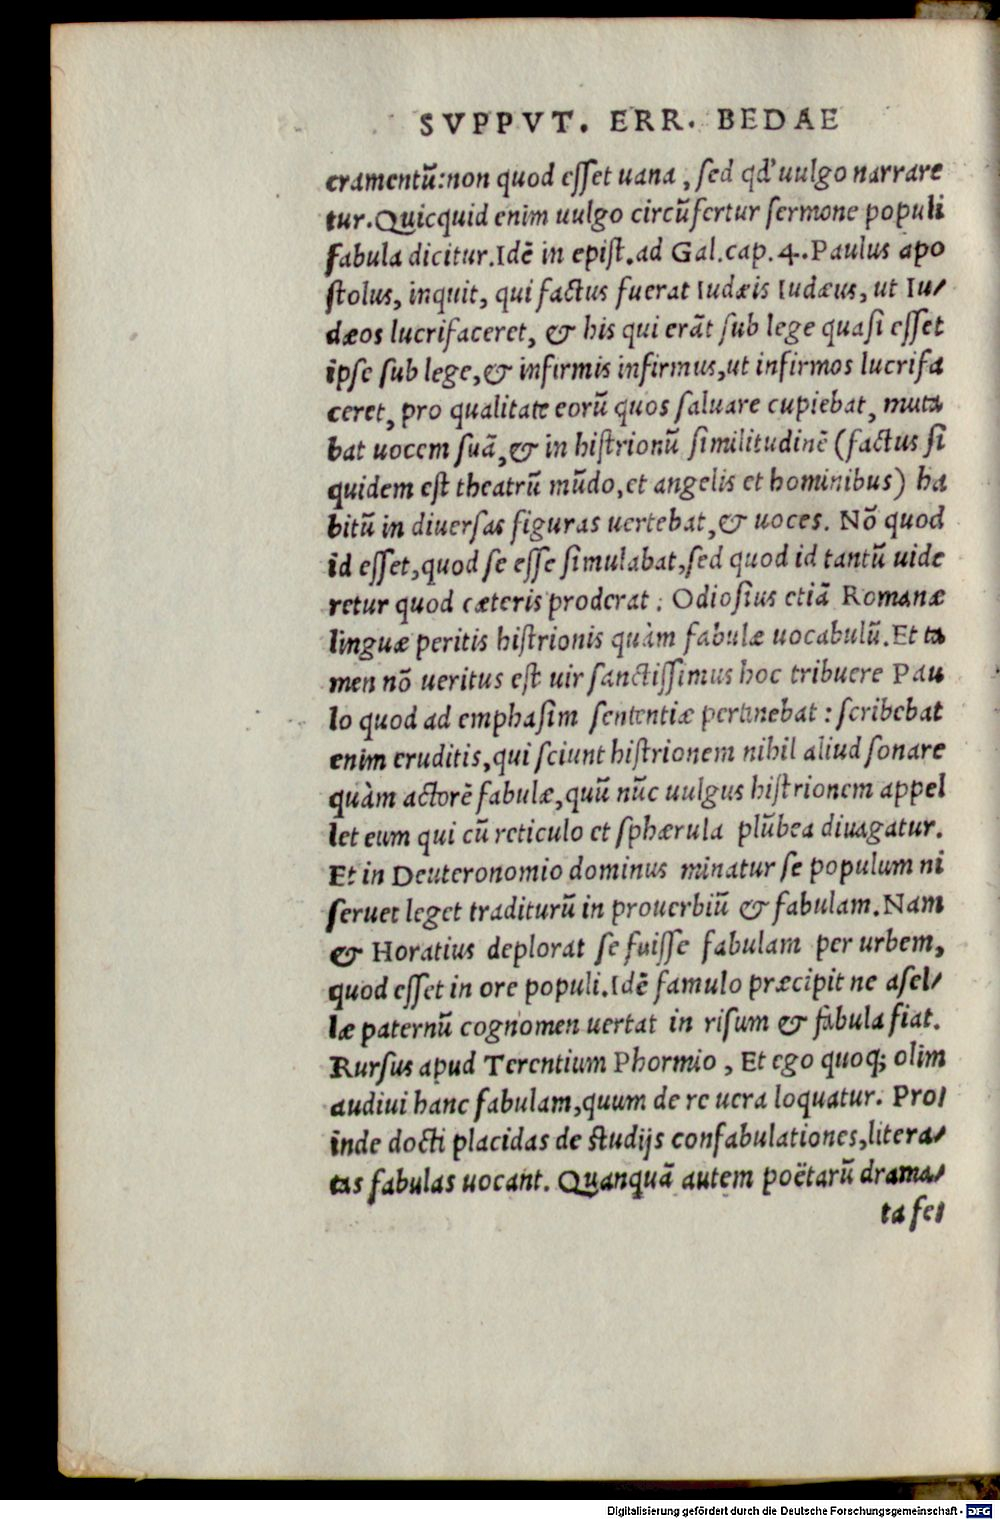 SVPPVT. ERR. BEDAE
cramentũ:non quod esset uana, sed qd' uulgo narrare
tur.Quicquid enim uulgo circũfertur sermone populi
fabula dicitur.Idẽ in epist.ad Gal.cap.4.Paulus apo
stolus, inquit, qui factus fuerat Iudæis Iudæus, ut Iu/
dæos lucrifaceret, & his qui erãt sub lege quasi esset
ipse sub lege,& infirmis infirmus,ut infirmos lucrifa
ceret, pro qualitate eorũ quos saluare cupiebat, muta
bat uocem suã,& in histrionũ similitudinẽ (factus si
quidem est theatrũ mũdo,et angelis et hominibus) ha
bitũ in diuersas figuras uertebat,& uoces. Nõ quod
id esset,quod se esse simulabat,sed quod id tantũ uide
retur quod cæteris proderat. Odiosius etiã Romanæ
linguæ peritis histrionis quàm fabulæ uocabulũ.Et ta
men nõ ueritus est uir sanctissimus hoc tribuere Pau
lo quod ad emphasim sententiæ pertinebat: scribebat
enim eruditis,qui sciunt histrionem nihil aliud sonare
quàm actorẽ fabulæ,quũ nũc uulgus histrionem appel
let eum qui cũ reticulo et sphærula plũbea diuagatur.
Et in Deuteronomio dominus minatur se populum ni
seruet leget traditurũ in prouerbiũ & fabulam.Nam
& Horatius deplorat se fuisse fabulam per urbem,
quod esset in ore populi.Idẽ famulo præcipit ne asel/
læ paternũ cognomen uertat in risum & fabula fiat.
Rursus apud Terentium Phormio, Et ego quoq; olim
audiui hanc fabulam,quum de re uera loquatur. Pro/
inde docti placidas de studijs confabulationes,litera/
tas fabulas uocant. Quanquã autem poëtarũ drama/
ta fe/
Digitalisierung gefördert durch die Deutsche Forschungsgemeinschaft - DFG